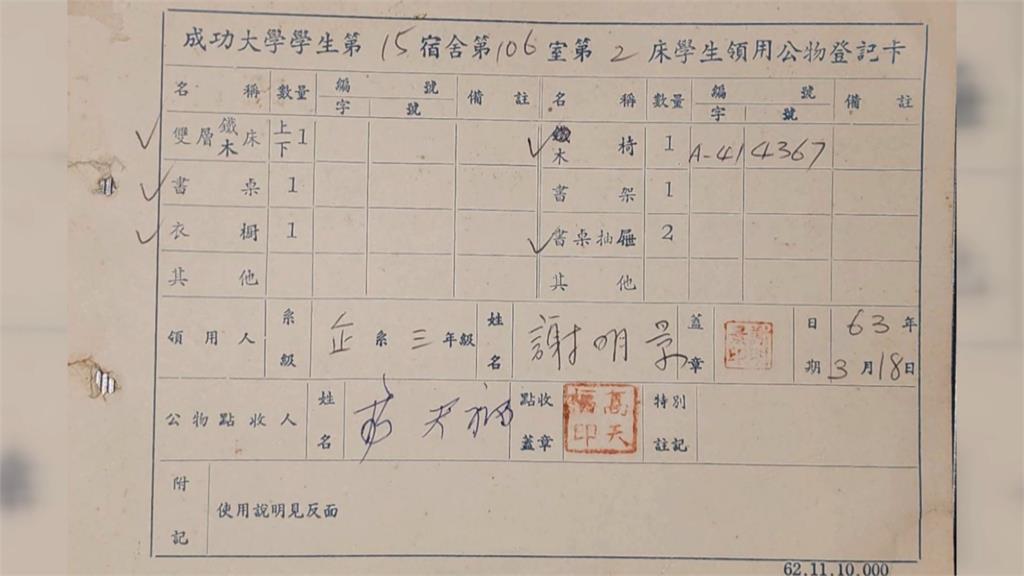 成功大學學生第15宿舍第106室第2床學生領用公物登記卡
名稱 數量 編號 備註 名稱 數量 編號 備註
字 號 字 號
雙層鐵木床 上下1 鐵木椅 1 A-41 4367
書桌 1 書架 1
衣櫥 1 書桌抽屜 2
其他 其他
領用人 系級 企系三年級 姓名 謝明景 蓋章 日期 63年3月18日
公物點收人 姓名 高天福 點收蓋章 高天福印 特別註記
附記 使用說明見反面
62.11.10.000